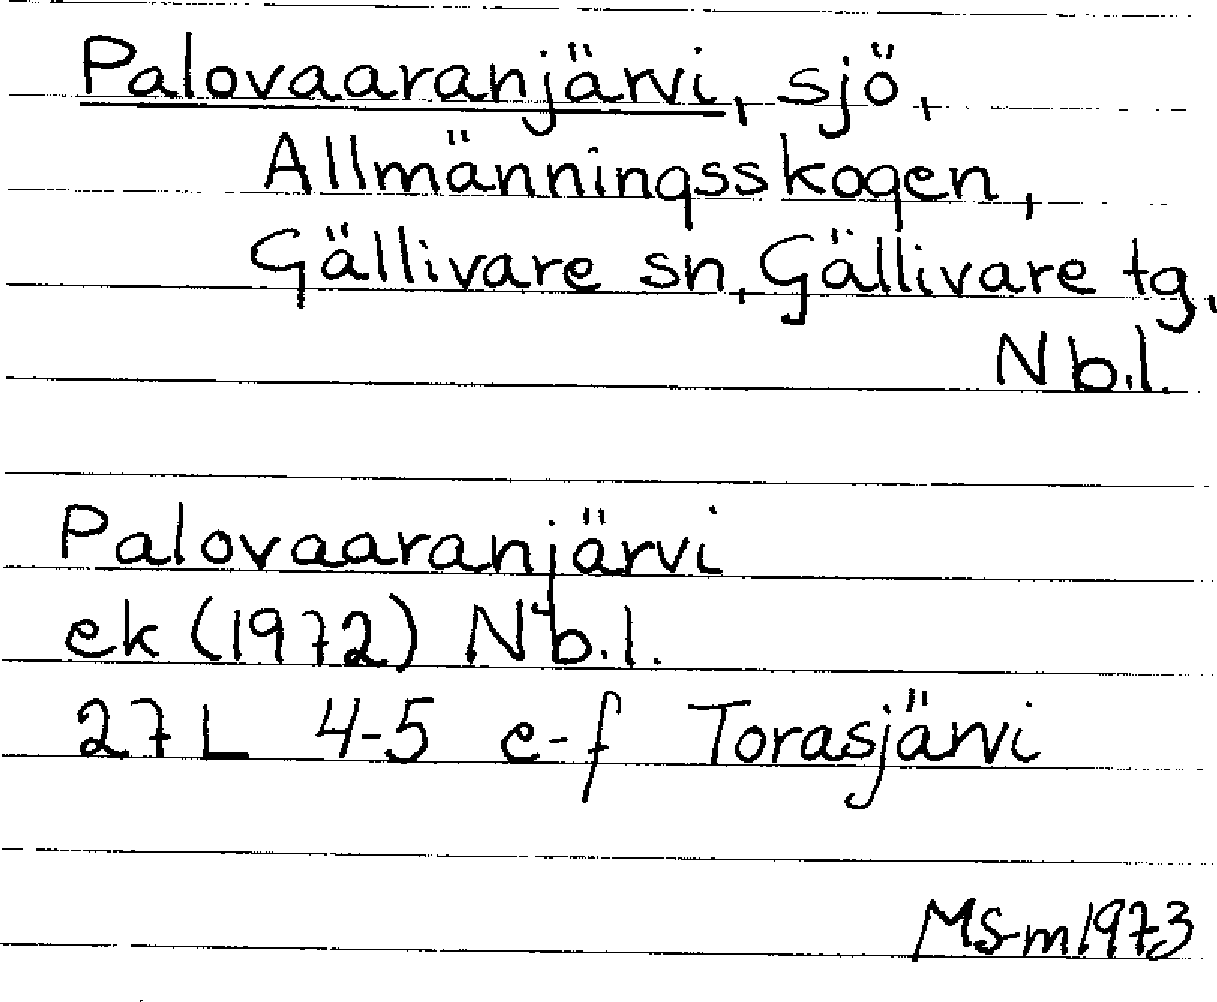 Palovaaranjärvi, sjö,
Allmänningsskogen,
Gällivare sn, Gällivare tg,
Nb.l.
Palovaaranjärvi
ek (1972) Nb.l.
27 L 4-5 e-f Torasjärvi
MS-m 1973